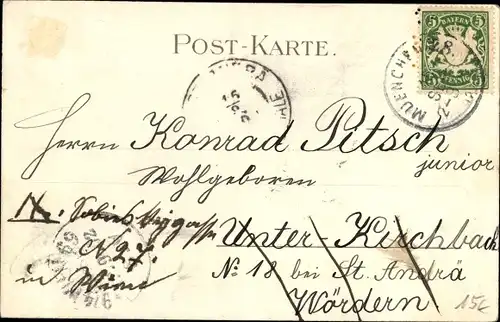 POST-KARTE.
BAYERN
5 5
PFENNIG
MUENCHEN
Herrn Konrad Pitsch
junior
Wohlgeboren
IX. Sobieskygasse
N 27.
in Wien
Unter-Kirchbach
No 18 bei St. Andrä
Wördern
15€